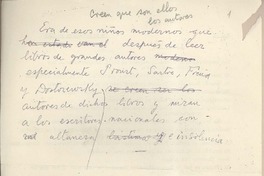 creen que son ellos
los autores
1
Era de esos niños modernos que
después de leer
libros de grandes autores modernos
especialmente Proust, Sartre, Freud
y Dostoiewsky, se creen ser los
autores de dichos libros y miran
a los escritores nacionales con
altanería e insolencia